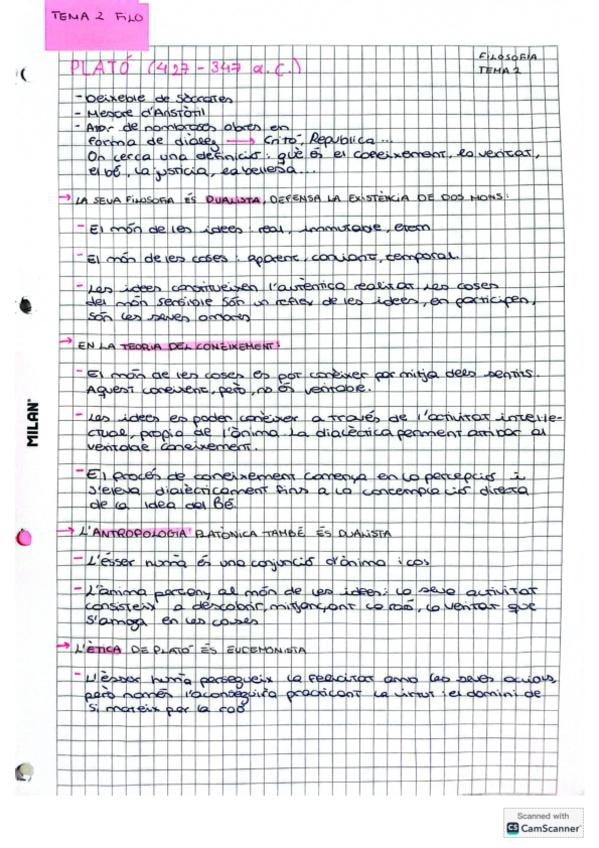 TEMA 2 FILO
FILOSOFIA
TEMA 2
PLATÓ (427-347 a.C.)
- Deixeble de Sòcrates
- Mestre d'Aristòtil
- Autor de nombroses obres en
forma de diàleg → Critó, República...
On cerca una definició: què és el coneixement, la veritat,
el bé, la justícia, la bellesa...
→ LA SEVA FILOSOFIA ÉS DUALISTA, DEFENSA LA EXISTÈNCIA DE DOS MONS:
- El món de les idees: real, immutable, etern
- El món de les coses: aparent, canviant, temporal.
- Les idees constitueixen l'autèntica realitat les coses
del món sensible són un reflex de les idees, en participen,
són les seves ombres
→ EN LA TEORIA DEL CONEIXEMENT:
- El món de les coses es pot conèixer per mitjà dels sentits.
Aquest coneixement, però, no és veritable.
- Les idees es poden conèixer a través de l'activitat intel·le-
ctual, pròpia de l'ànima. La dialèctica permet arribar al
veritable coneixement.
- El procés de coneixement comença en la percepció i
s'eleva dialècticament fins a la contemplació directa
de la idea del Bé.
→ L'ANTROPOLOGIA PLATÒNICA TAMBÉ ÉS DUALISTA
- L'ésser humà és una conjunció d'ànima i cos
- L'ànima pertany al món de les idees: la seva activitat
consisteix a descobrir, mitjançant la raó, la veritat que
s'amaga en les coses
→ L'ÈTICA DE PLATÓ ÉS EUDEMONISTA
- L'ésser humà persegueix la felicitat amb les seves accions,
però només l'aconseguirà practicant la virtut: el domini de
si mateix per la raó
MILAN
Scanned with
CS CamScanner